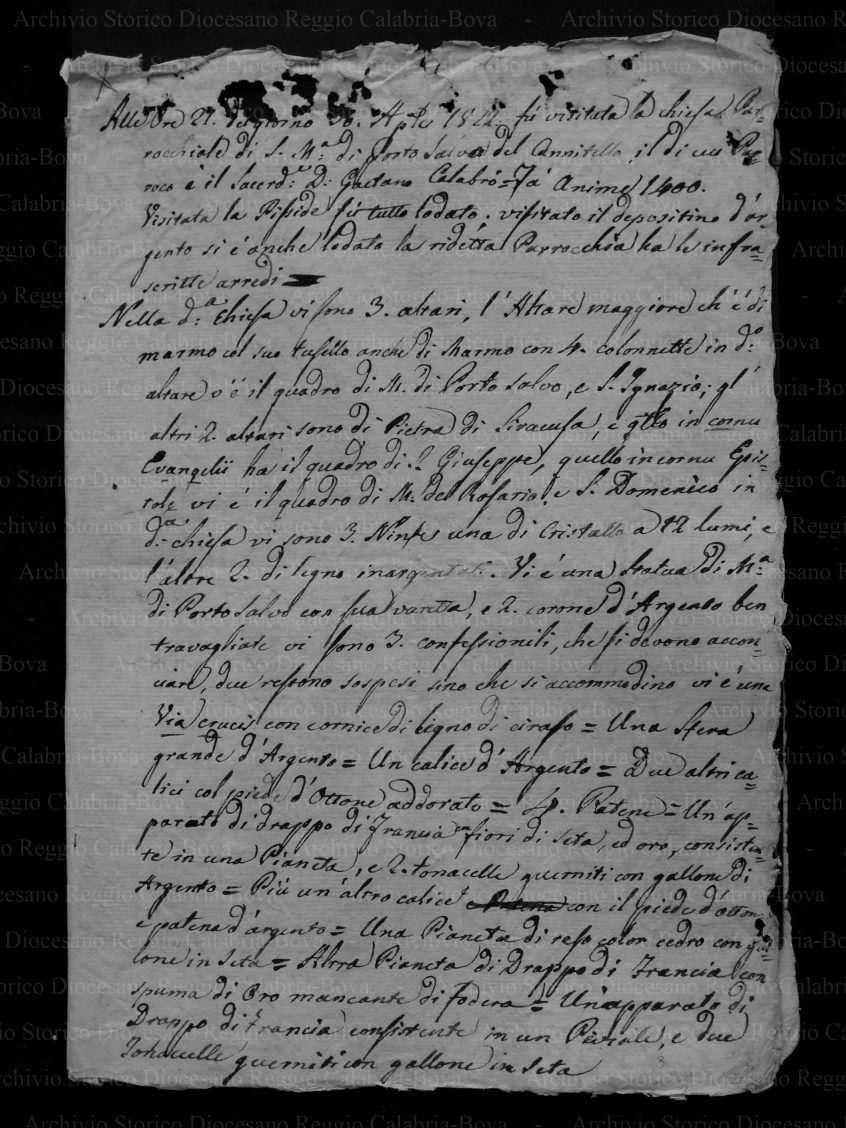 Alle Ore 21. del giorno 30. Ap.le 18 fù visitata la chiesa Par=
rocchiale di S. M.a di Porto Salvo del Cannitello, il di cui Par=
roco è il Sacerd.e D. Gaetano Calabrò = Fà Anime 1400.
Visitata la Pisside fù tutto lodato. visitato il depositino d'ar=
gento si è anche lodato la ridetta Parrocchia ha le infra=
scritte arredi =
Nella d.a Chiesa vi sono 3. altari, l'Altare maggiore ch'è di
marmo col suo tusello anche di Marmo con 4. colonnette in d.o
altare v'è il quadro di M. di Porto Salvo, e S. Ignazio; gl'
altri 2. altari sono di Pietra di Siracusa, e q.llo in cornu
Evangelii ha il quadro di S. Giuseppe, quello in cornu Epis=
tolę vi è il quadro di M. del Rosario, e S. Domenico in
d.a chiesa vi sono 3. Ninfe una di Cristallo a 12 lumi, e
l'altre 2. di legno inargentati. Vi è una statua di M.a
di Porto Salvo con sua varetta, e 2. corone d'Argento ben
travagliate vi sono 3. confessionili, che si devono accon=
ciare, due restono sospesi sino che si accommodino vi è una
Via crucis con cornice di legno di ciraso = Una Sfera
grande d'Argento = Un calice d'Argento = Due altri ca=
lici col piede d'Ottone addorato = 4. Patene = Un'ap=
parato di drappo di Francia con fiori di seta, ed oro, consisten=
te in una Pianeta, e 2. tonacelle guerniti con gallone di
Argento = Più un'altro calice e Patena con il piede d'otton
e patena d'argento = Una Pianeta di raso color cedro con gal=
lone in seta = Altra Pianeta di Drappo di Francia con
spuma di Oro mancante di fodera = Un'apparato di
Drappo di Francia consistente in un Piviale, e due
Tonacelle guerniti con gallone in seta
Archivio Storico Diocesano Reggio Calabria-Bova